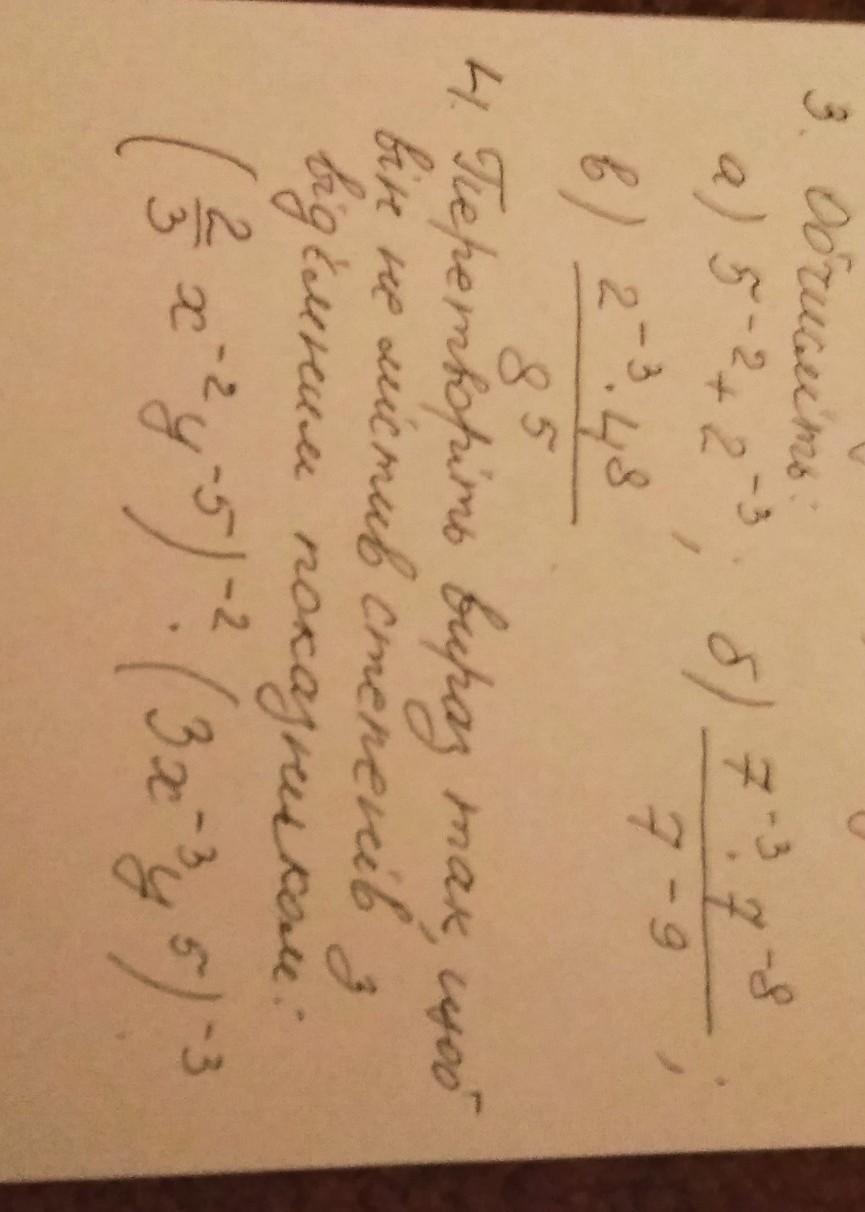 3. Обчисліть:
а) 5⁻² + 2⁻³; б) (7⁻³ · 7⁻⁸)/(7⁻⁹);
в) (2⁻³ · 4⁸)/(8⁵)
4. Перетворіть вираз так, щоб
він не містив степенів з
від'ємним показником:
(2/3 x⁻² y⁻⁵)⁻² · (3x⁻³ y⁵)⁻³